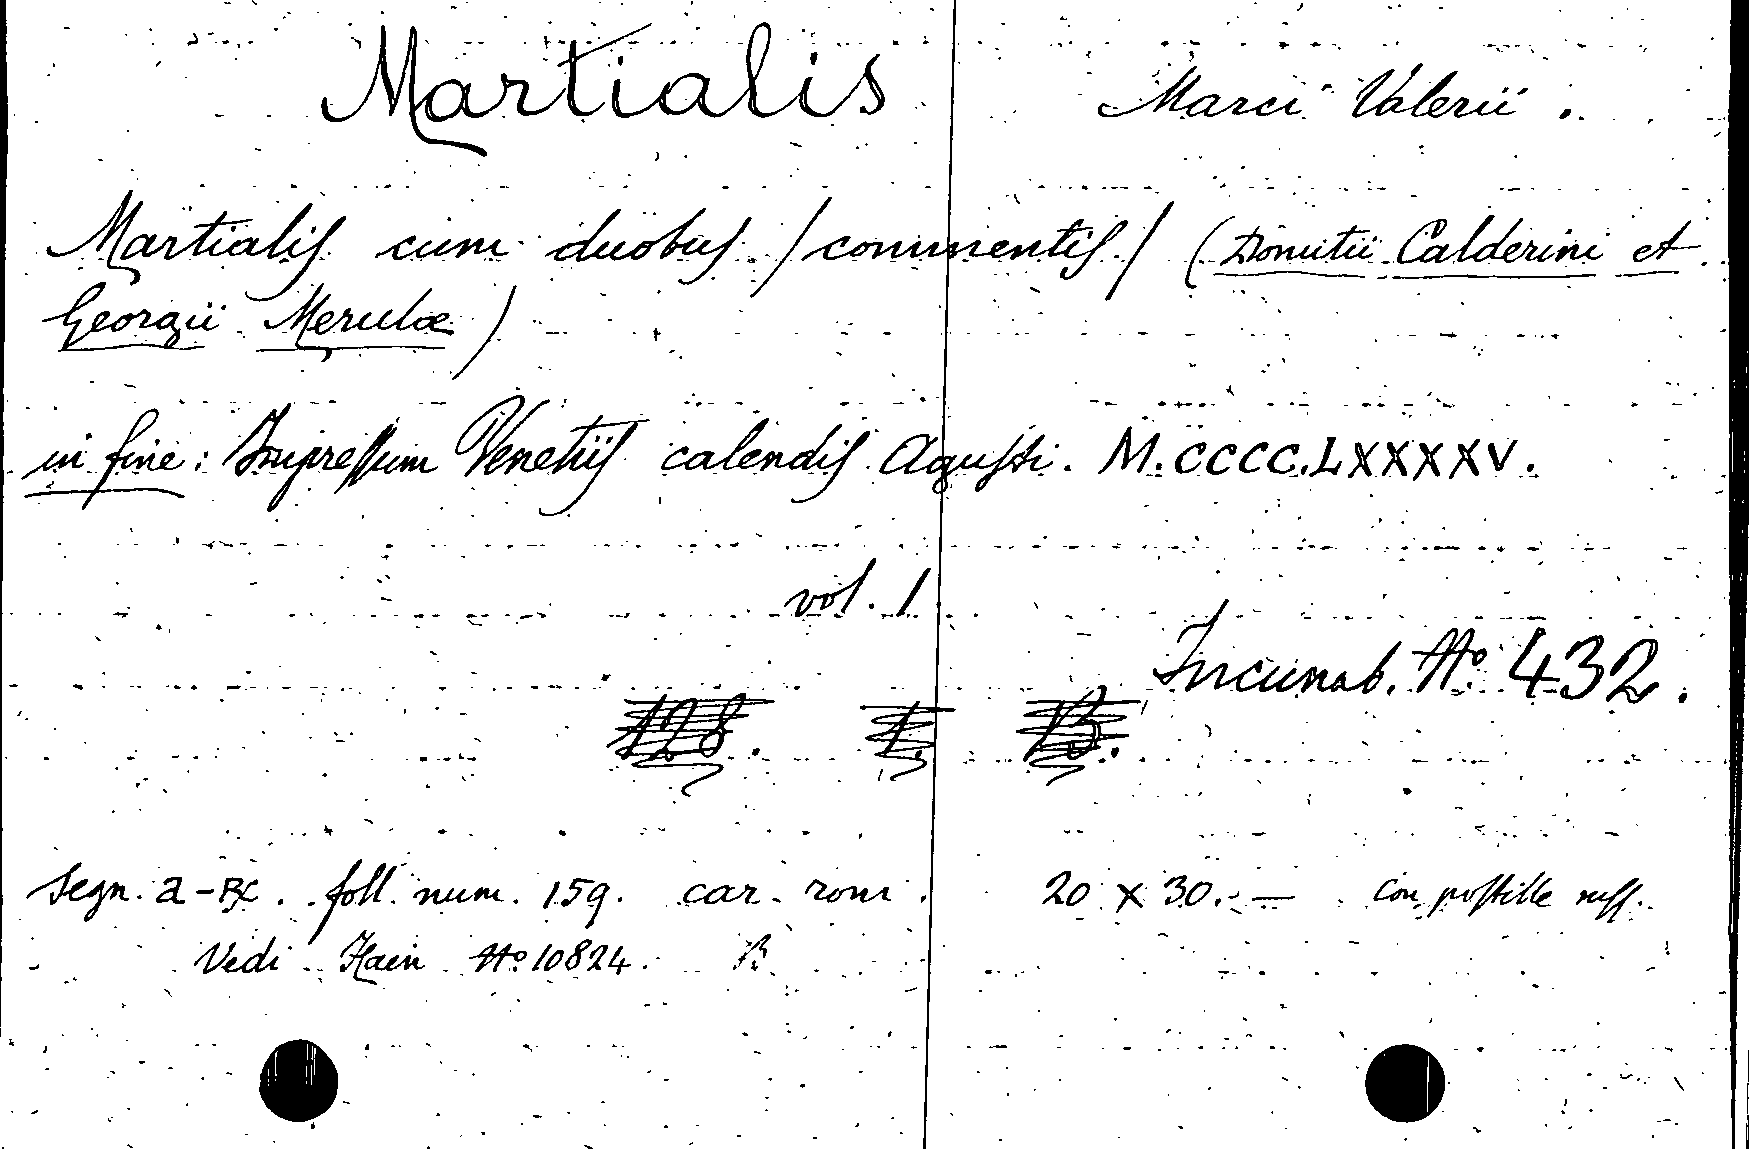 Martialis Marci Valerii.
Martialis cum duobus /commentis/ (Domitii Calderini et
Georgii Merulæ)
in fine: Impressum Venetiis calendis Agusti. M.CCCC.LXXXXV.
vol. 1
Incunab. No 432.
128. 1. B.
segn. a - . foll. num. 159. car. rom. 20 x 30. — con postille mss.
Vedi Hain No 10824. B